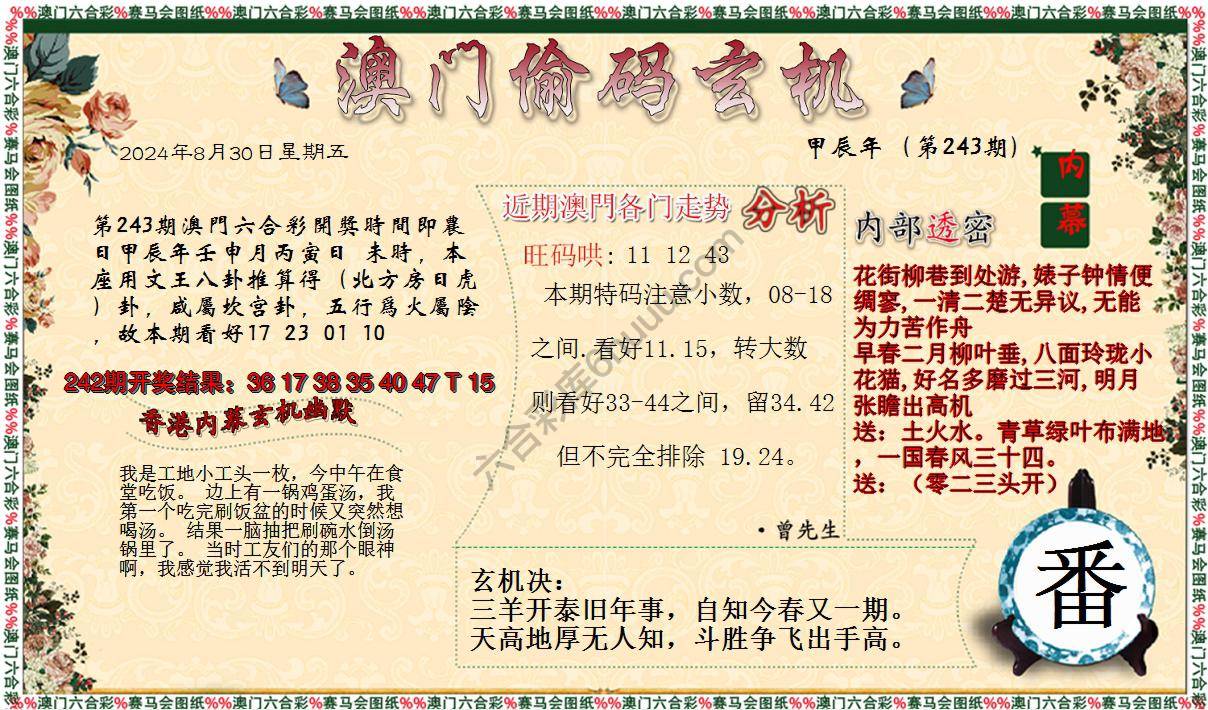 %%澳门六合彩%赛马会图纸%%澳门六合彩%赛马会图纸%%澳门六合彩%赛马会图纸%%澳门六合彩%赛马会图纸%%澳门六合彩%赛马会图纸%%澳门六合彩%赛马会图纸%%
澳门偷码玄机
2024年8月30日星期五
甲辰年（第243期）
内幕
第243期澳門六合彩開獎時間即農
日甲辰年壬申月丙寅日 未時，本
座用文王八卦推算得（北方房日虎
）卦，咸屬坎宫卦，五行爲火屬陰
，故本期看好17 23 01 10
242期开奖结果：36 17 38 35 40 47 T 15
香港内幕玄机幽默
我是工地小工头一枚，今中午在食
堂吃饭。 边上有一锅鸡蛋汤，我
第一个吃完刷饭盆的时候又突然想
喝汤。 结果一脑抽把刷碗水倒汤
锅里了。 当时工友们的那个眼神
啊，我感觉我活不到明天了。
近期澳門各门走势 分析
旺码哄: 11 12 43
本期特码注意小数，08-18
之间.看好11.15，转大数
则看好33-44之间，留34.42
但不完全排除 19.24。
·曾先生
内部透密
花街柳巷到处游,婊子钟情便
绸寥,一清二楚无异议,无能
为力苦作舟
早春二月柳叶垂,八面玲珑小
花猫,好名多磨过三河,明月
张瞻出高机
送：土火水。青草绿叶布满地
，一国春风三十四。
送：（零二三头开）
玄机决：
三羊开泰旧年事，自知今春又一期。
天高地厚无人知，斗胜争飞出手高。
番
%%澳门六合彩%赛马会图纸%%澳门六合彩%赛马会图纸%%澳门六合彩%赛马会图纸%%澳门六合彩%赛马会图纸%%澳门六合彩%赛马会图纸%%澳门六合彩%赛马会图纸%%